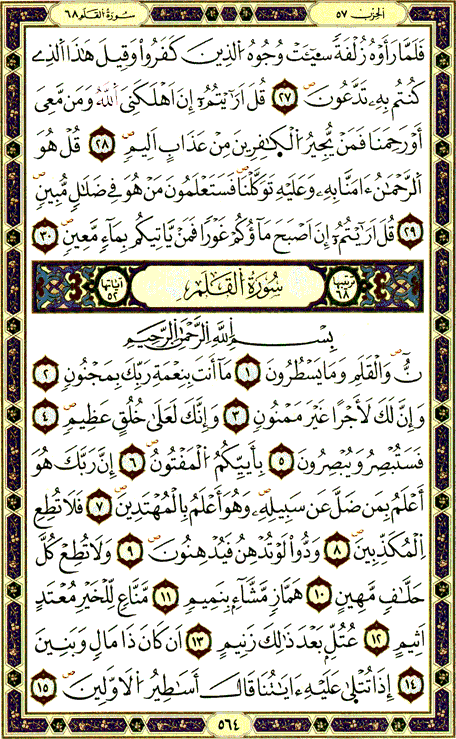 الحزب ٥٧
سورة القلم ٦٨
فَلَمَّا رَأَوْهُ زُلْفَةً سِيٓـَٔتْ وُجُوهُ اُ۬لذِينَ كَفَرُواْ وَقِيلَ هَٰذَا اَ۬لذِے
كُنتُم بِهِۦ تَدَّعُونَ ٢٧ قُلَ اَرَٰٓيْتُمُۥٓ إِنَ اَهْلَكَنِيَ اَ۬للَّهُ وَمَن مَّعِے
أَوْ رَحِمَنَا فَمَنْ يُّجِيرُ اُ۬لْكَٰفِرِينَ مِنْ عَذَابٍ اَلِيمٍ ٢٨ قُلْ هُوَ
اَ۬لرَّحْمَٰنُ ءَامَنَّا بِهِۦ وَعَلَيْهِ تَوَكَّلْنَا فَسَتَعْلَمُونَ مَنْ هُوَ فِے ضَلَٰلٍ مُّبِينٍ
٢٩ قُلَ اَرَٰٓيْتُمُۥٓ إِنَ اَصْبَحَ مَآؤُكُمْ غَوْرًا فَمَنْ يَّاتِيكُم بِمَآءٍ مَّعِينٍ ٣٠
ترتيبها ٦٨ سُورَةُ اُ۬لْقَلَمِ آياتها ٥٢
بِسْمِ اِ۬للَّهِ اِ۬لرَّحْمَٰنِ اِ۬لرَّحِيمِ
نُّ وَالْقَلَمِ وَمَا يَسْطُرُونَ ١ مَآ أَنتَ بِنِعْمَةِ رَبِّكَ بِمَجْنُونٍ ٢
وَإِنَّ لَكَ لَأَجْرًا غَيْرَ مَمْنُونٍ ٣ وَإِنَّكَ لَعَلَىٰ خُلُقٍ عَظِيمٍ ٤
فَسَتُبْصِرُ وَيُبْصِرُونَ ٥ بِأَييِّكُمُ اُ۬لْمَفْتُونُ ٦ إِنَّ رَبَّكَ هُوَ
أَعْلَمُ بِمَن ضَلَّ عَن سَبِيلِهِۦ وَهُوَ أَعْلَمُ بِالْمُهْتَدِينَ ٧ فَلَا تُطِعِ
اِ۬لْمُكَذِّبِينَ ٨ وَدُّواْ لَوْ تُدْهِنُ فَيُدْهِنُونَ ٩ وَلَا تُطِعْ كُلَّ
حَلَّافٍ مَّهِينٍ ١٠ هَمَّازٍ مَّشَّآءٍۢ بِنَمِيمٍ ١١ مَّنَّاعٍ لِّلْخَيْرِ مُعْتَدٍ
اَثِيمٍ ١٢ عُتُلِّۢ بَعْدَ ذَٰلِكَ زَنِيمٍ ١٣ اَن كَانَ ذَا مَالٍ وَبَنِينَ
١٤ إِذَا تُتْلَىٰ عَلَيْهِ ءَايَٰتُنَا قَالَ أَسَٰطِيرُ اُ۬لَاوَّلِينَ ١٥
٥٦٤